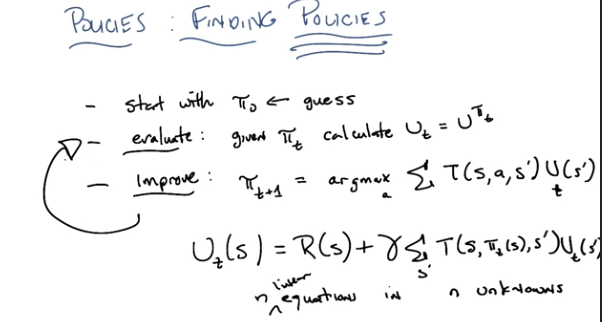 POLICIES : FINDING POLICIES
- start with π₀ ← guess
- evaluate : given πₜ calculate Uₜ = U^πₜ
- Improve : πₜ₊₁ = argmaxₐ Σ T(s,a,s') Uₜ(s')
Uₜ(s) = R(s) + γ Σₛ' T(s, πₜ(s), s') Uₜ(s')
n linear equations in n unknowns